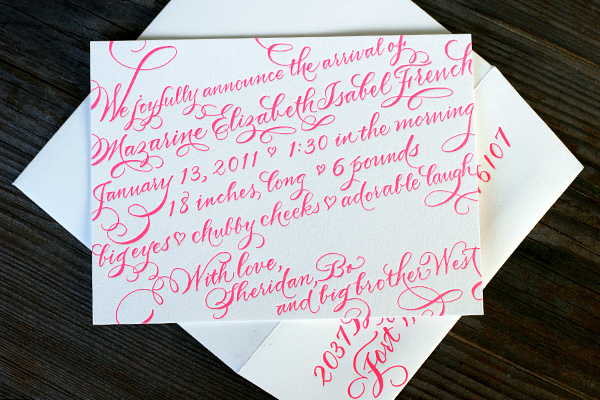 We joyfully announce the arrival of
Mazarine Elizabeth Isabel French
January 13, 2011 ♡ 1:30 in the morning
18 inches long ♡ 6 pounds
big eyes ♡ chubby cheeks ♡ adorable laugh
With love,
Sheridan, Bo
and big brother West
6107
2037
Fort